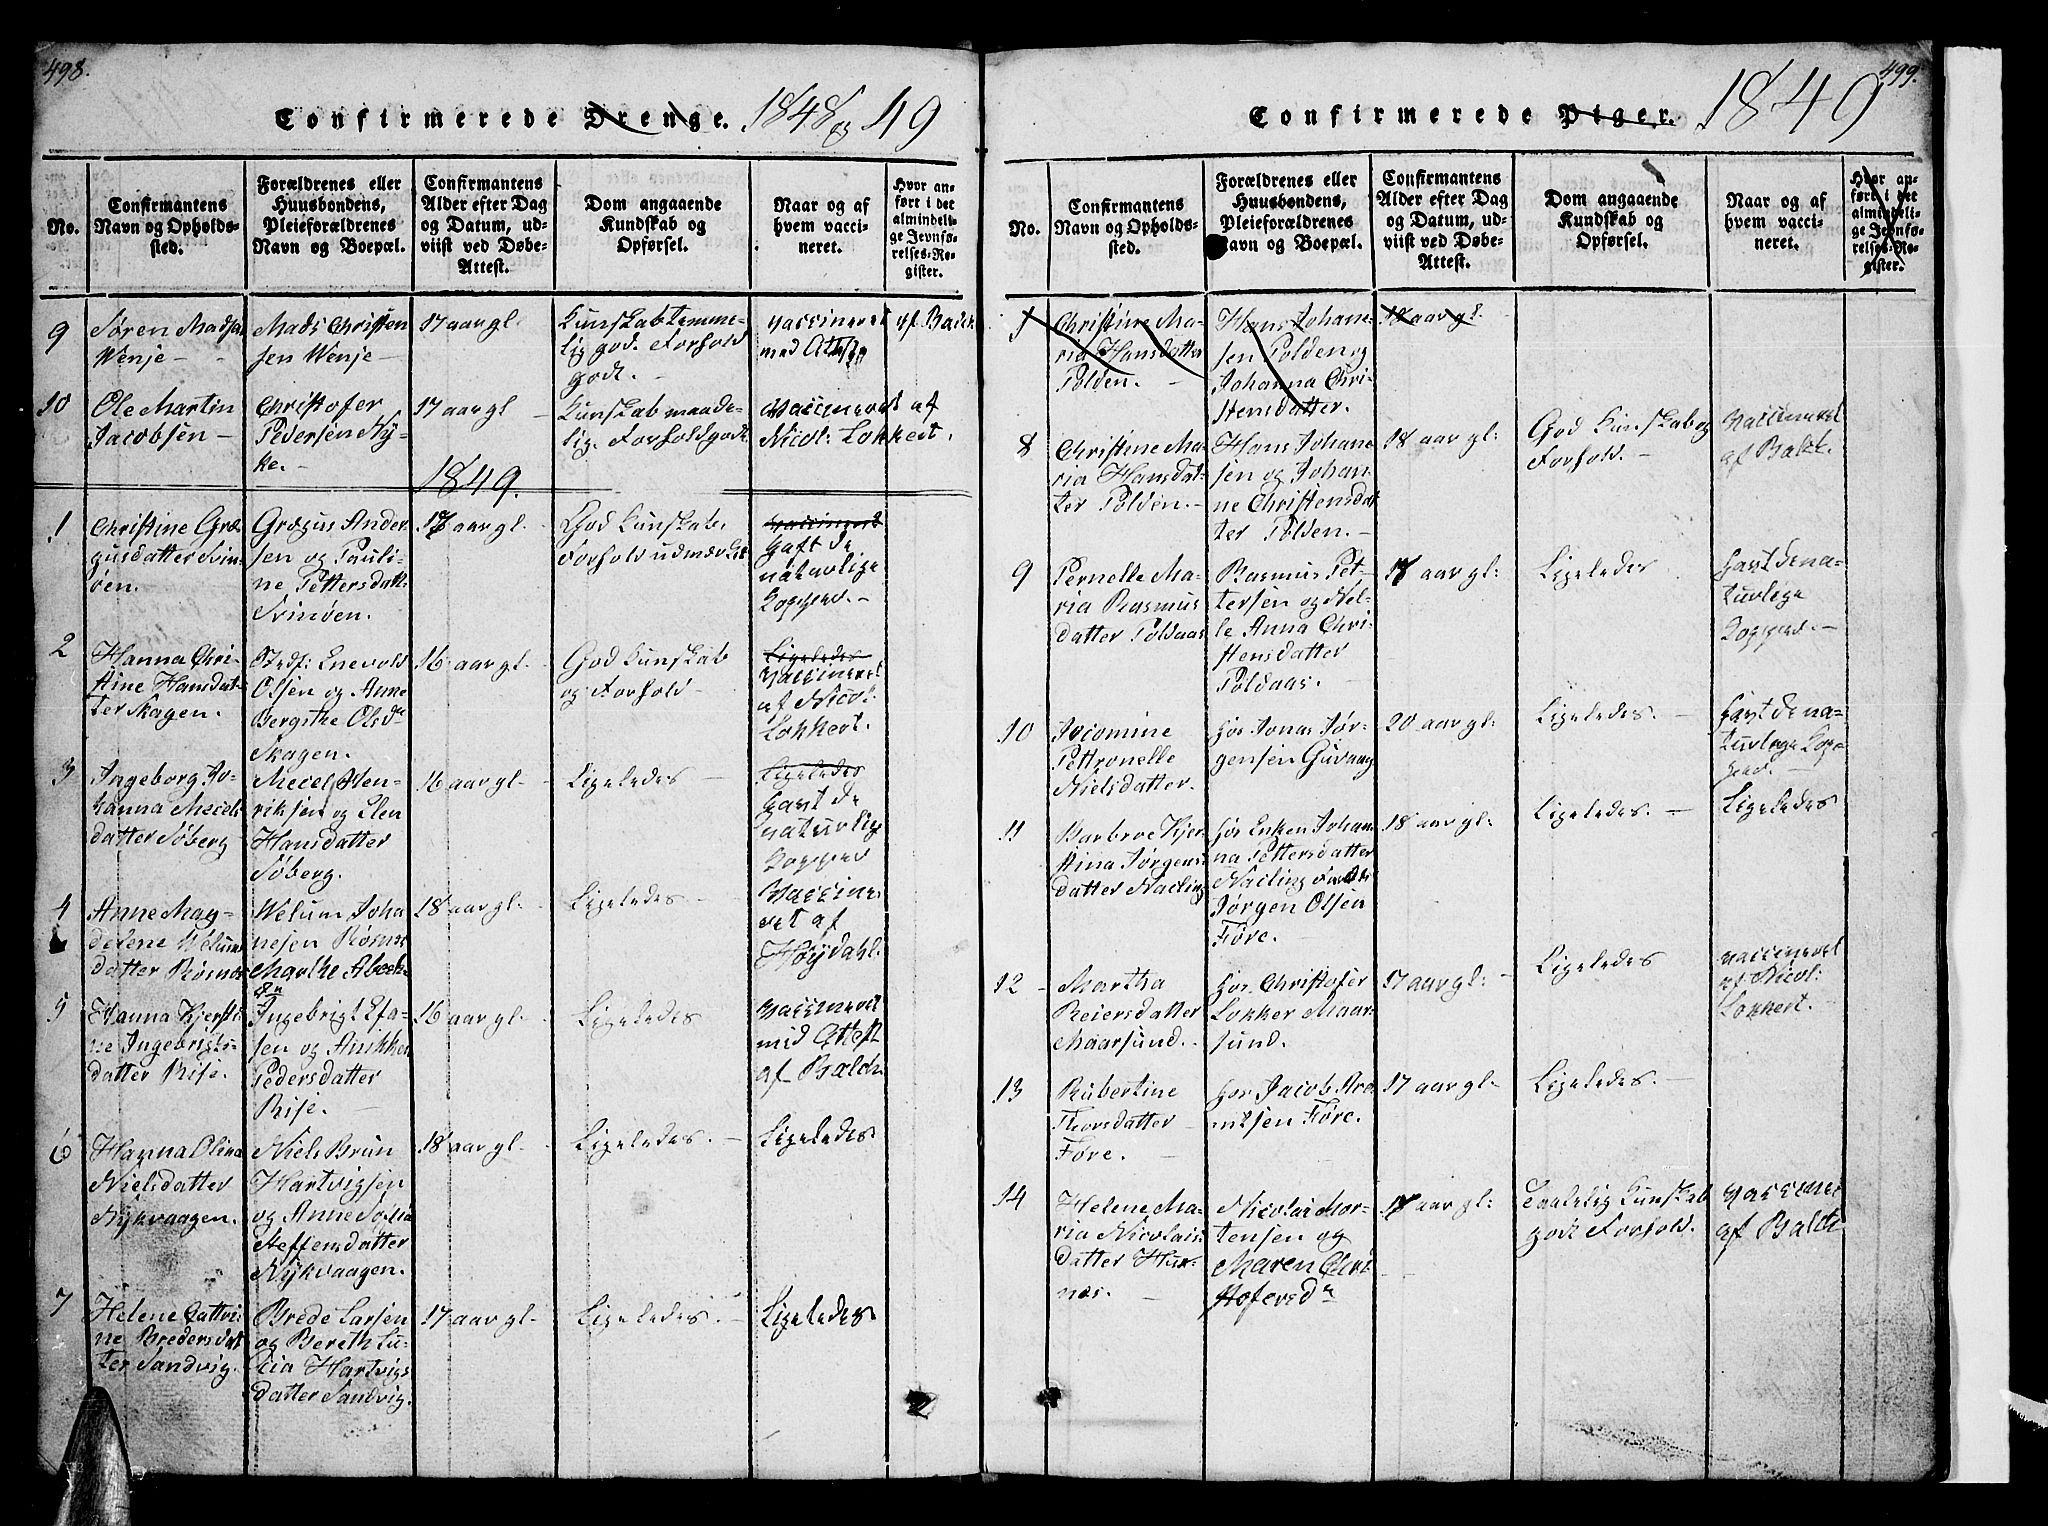 498.
Confirmerede Drenge. 1848 og 49
No.
Confirmantens
Navn og Opholds-
sted.
Forældrenes eller
Huusbondens,
Pleieforældrenes
Navn og Boepæl.
Confirmantens
Alder efter Dag
og Datum, ud-
viist ved Døbe-
Attest.
Dom angaaende
Kundskab og
Opførsel.
Naar og af
hvem vacci-
neret.
Hvor an-
ført i det
almindeli-
ge Jevnfø-
relses-Re-
gister.
9
Søren Madsen
Wenje
Mads Christen
sen Wenje
17 aar gl
Kunskab temme-
lig god. Forhold
godt.
Vaccineret
med Attest
af Balch
10
Ole Martin
Jacobsen
Christofer
Pedersen Ny-
ke.
17 aar gl
Kunskab maade-
lig. Forhold godt
Vaccineret af
Nicol: Lokkert.
1849.
1
Christine Græ
gusdatter Svin-
øen.
Grægus Ander
sen og Pauli-
ne Pettersdatt.
Svinøen.
17 aar gl.
God Kunskab.
Forhold udmærket
Vaccineret
Haft de
natuvlige
Kopper.
2
Hanna Chri-
stine Hansdat-
ter Skagen.
Stedf: Enevold
Olsen og Anne
Bergithe Olsdr
Skagen.
16 aar gl.
God Kunskab
og Forhold
Ligeledes
Vaccineret
af Nicol:
Lokkert.
3
Ingeborg Jo-
hanna Mecels
datter Søberg
Mecel Hen-
riksen og Elen
Hansdatter
Søberg.
16 aar gl.
Ligeledes
Ligeledes
Havt de
naturlige
Kopper
4
Anne Mag-
delene Welums
datter Røsnæs
Welum Joha
nesen Røsnes
Marthe Abech.
dr
18 aar gl.
Ligeledes
Vaccine-
ret af
Høydahl.
5
Hanna Kjersti-
ne Ingebrigts
datter Rise.
Ingebrigt Esa-
sen og Anikken
Pedersdatter
Rise.
16 aar gl.
Ligeledes
Vaccineret
mid Attest
af Balch
6
Hanna Olina
Nielsdatter
Nykvaagen.
Niels Brun
Hartvigsen
og Anne Sofia
Steffensdatter
Nykvaagen.
18 aar gl.
Ligeledes.
Ligeledes
7
Helene Cattri-
ne Bredersdat
ter Sandvig.
Brede Larsen
og Bereth Lu-
cia Hartvigs
datter Sandvig.
17 aar gl.
Ligeledes.
Ligeledes
499.
Confirmerede Piger. 1849
No.
Confirmantens
Navn og Opholds-
sted.
Forældrenes eller
Huusbondens,
Pleieforældrenes
Navn og Boepæl.
Confirmantens
Alder efter Dag
og Datum, ud-
viist ved Døbe-
Attest.
Dom angaaende
Kundskab og
Opførsel.
Naar og af
hvem vacci-
neret.
Hvor an-
ført i det
almindeli-
ge Jevnfø-
relses-Re-
gister.
Christine Ma-
ria Hansdatter
Polden.
Hans Johane-
sen Polden og
Johanna Chri-
stensdatter.
18 aar gl.
8
Christine Ma-
ria Hansdat-
ter Polden.
Hans Johane
sen og Johan-
ne Christensdat
ter Polden.
18 aar gl:
God Kunskab og
Forhold.
Vaccineret
af Balch.
9
Pernelle Ma-
ria Rasmus
datter Poldaas
Rasmus Pet-
tersen og Nel-
le Anna Chri-
stensdatter
Poldaas.
17 aar gl:
Ligeledes
Havt de na-
turlige
Kopper.
10
Jocomine
Pettronelle
Nielsdatter.
hos Jonas Jør-
gensen Guvaag
20 aar gl:
Ligeledes.
Havt de na-
turlige Kop-
per.
11
Barbroe Kjer
stina Jørgens
datter Nacling
hos Enken Johan
na Pettersdatter
Nacling
Jørgen Olsen
Føre.
18 aar gl:
Ligeledes.
Ligeledes
12
Martha
Reiersdatter
Maarsund.
hos Christofer
Lokker Maar-
sund.
17 aar gl:
Ligeledes
Vaccineret
af Nicol:
Lokkert.
13
Rubertine
Thorsdatter
Føre.
hos Jacob Are
ntsen Føre.
17 aar gl.
Ligeledes.
14
Helene Ma-
ria Nicolais
datter Hur-
næs.
Nicolai Mor-
tensen og
Maren Chri
stofersdr
17 aar gl:
Taalelig Kunskab
godt Forhold.
Vaccine
af Balch